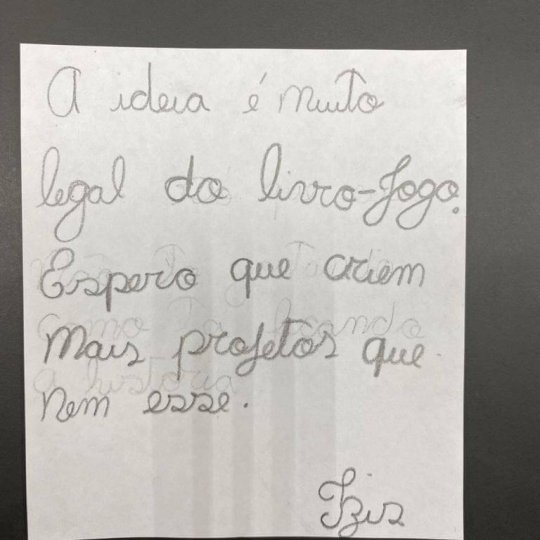 A ideia é muito
legal do livro-jogo.
Espero que criem
mais projetos que
nem esse.
Izis